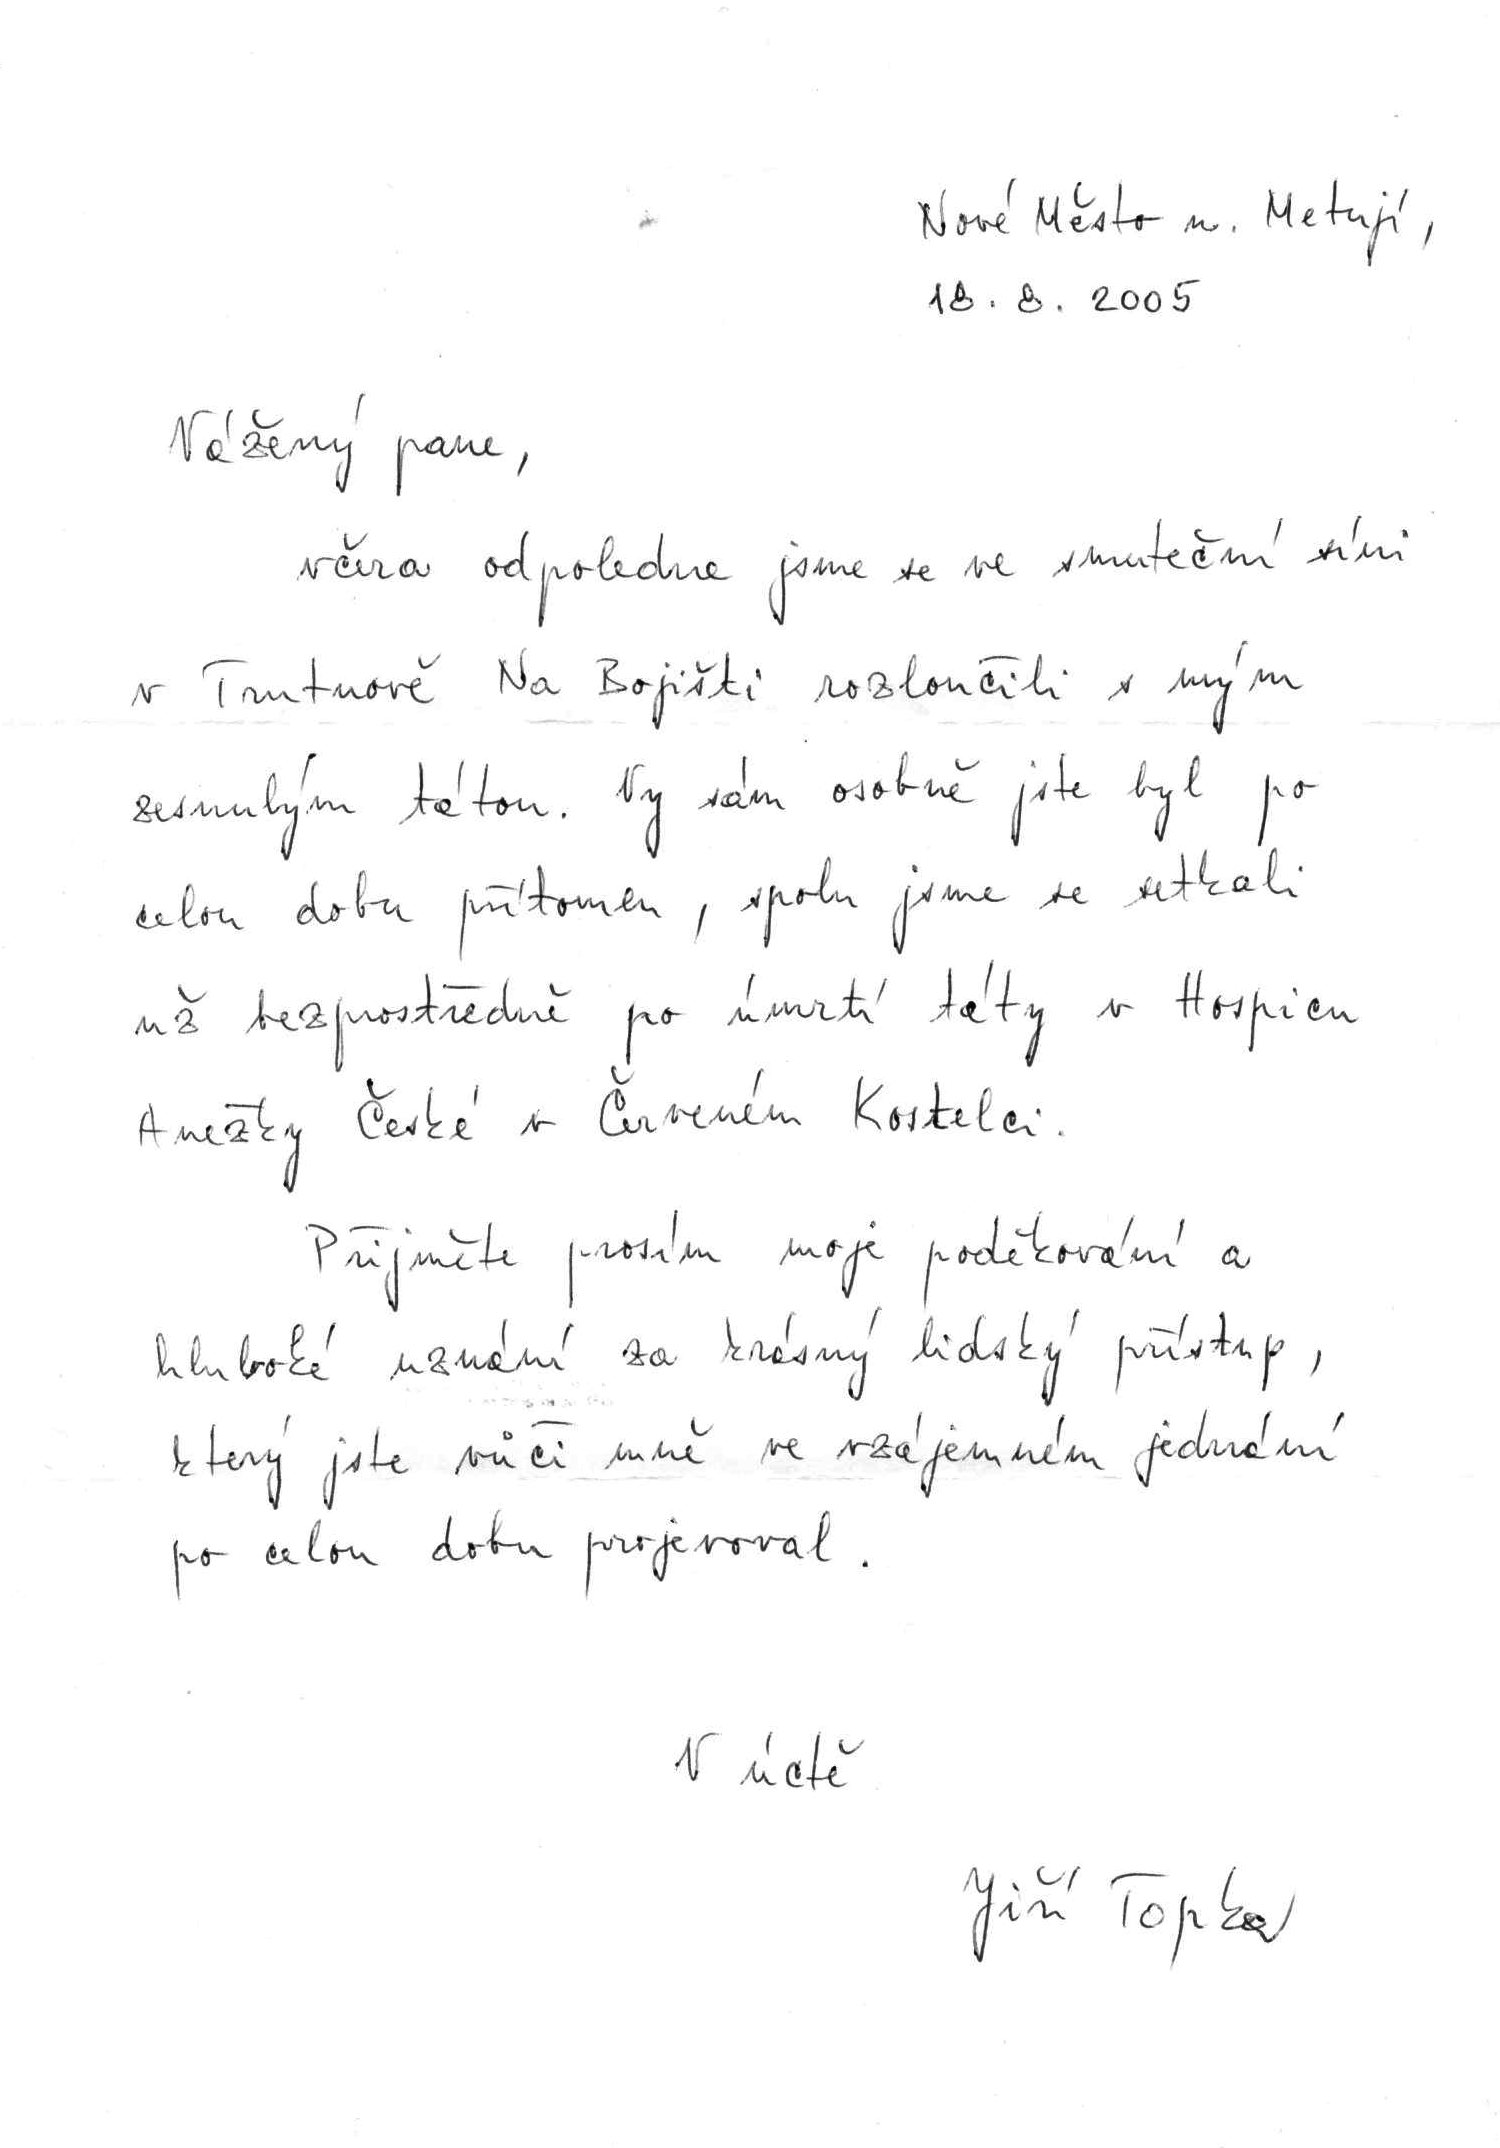 Nové Město n. Metují,
18. 8. 2005
Vážený pane,
včera odpoledne jsme se ve smuteční síni
v Trutnově Na Bojišti rozloučili s mým
zesnulým tátou. Vy sám osobně jste byl po
celou dobu přítomen, spolu jsme se setkali
už bezprostředně po úmrtí táty v Hospicu
Anežky České v Červeném Kostelci.
Přijměte prosím moje poděkování a
hluboké uznání za krásný lidský přístup,
který jste vůči mně ve vzájemném jednání
po celou dobu projevoval.
V úctě
Jiří Topka